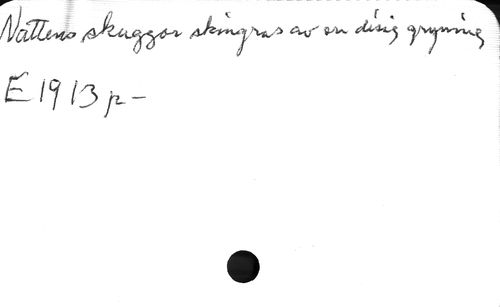 Nattens skuggor skingras av en disig gryning
E 1913 p -